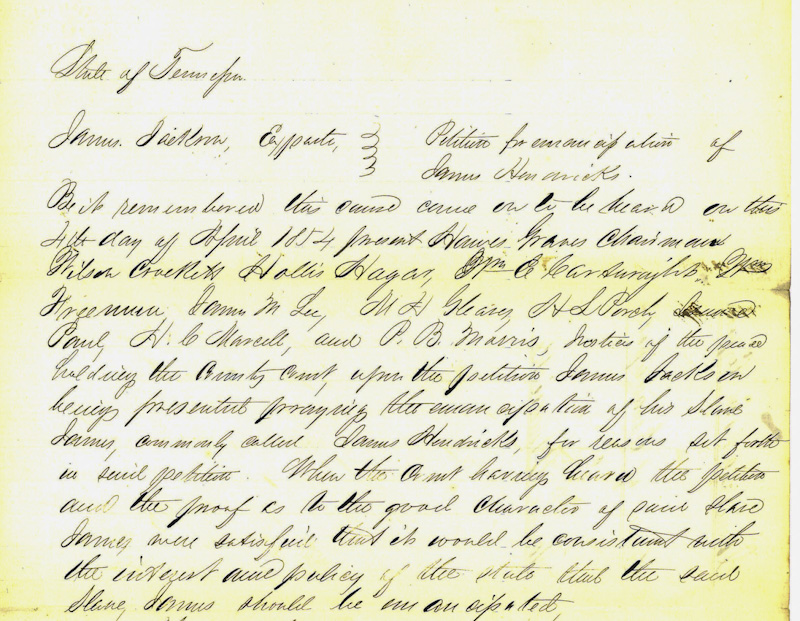 State of Tennessee
James. Jackson, Exparte, Petition for emancipation of
James Hendricks.
Be it remembered this cause came on to be heard on this
4th day of April 1854 present Hawes Graves Chairman
Wilson Crockett Hollis Hagar, Wm E Cartwright
Freeman, James M Lee, M H Gleaves, H L Porch,
Paul, H. C Marcell, and P. B. Morris, Justices of the peace
holding the County Court, upon the petition James Jackson
being presented praying the emancipation of his Slave
James, commonly called James Hendricks, for reasons set forth
in said petition. When the Court having heard the petition
and the proof as to the good character of said slave
James were satisfied that it would be consistant with
the interest and policy of the state that the said
slave James should be emancipated,